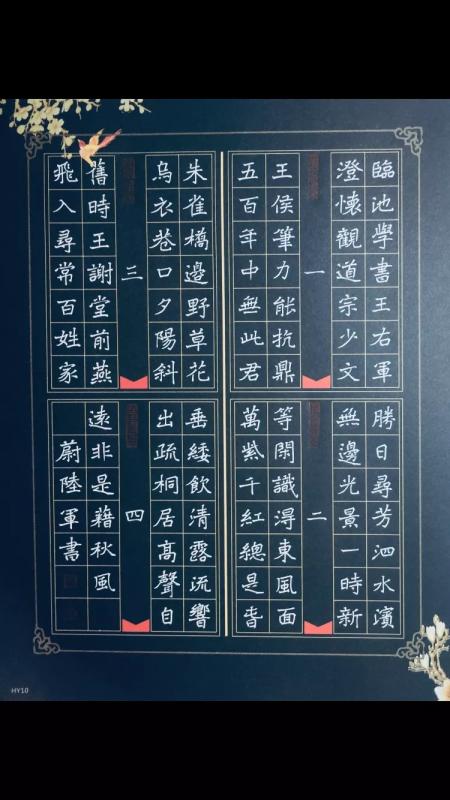 臨池學書王右軍
澄懷觀道宗少文
一
王侯筆力能抗鼎
五百年中無此君
勝日尋芳泗水濱
無邊光景一時新
二
等閑識得東風面
萬紫千紅總是春
朱雀橋邊野草花
烏衣巷口夕陽斜
三
舊時王謝堂前燕
飛入尋常百姓家
垂緌飲清露流響
出疏桐居高聲自
四
遠非是藉秋風
蔚陸軍書
HY10